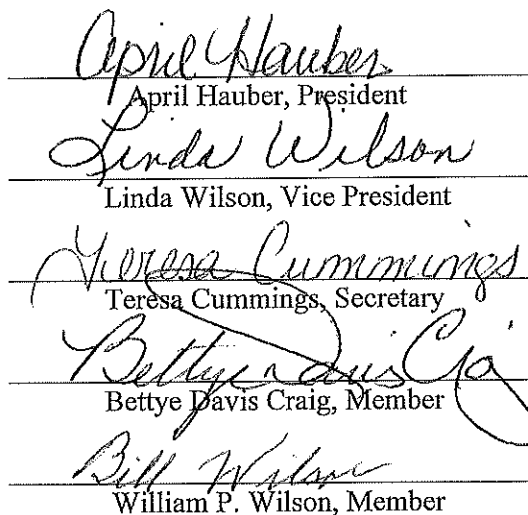 April Hauber
April Hauber, President
Linda Wilson
Linda Wilson, Vice President
Teresa Cummings
Teresa Cummings, Secretary
Bettye Davis
Bettye Davis Craig, Member
Bill Wilson
William P. Wilson, Member